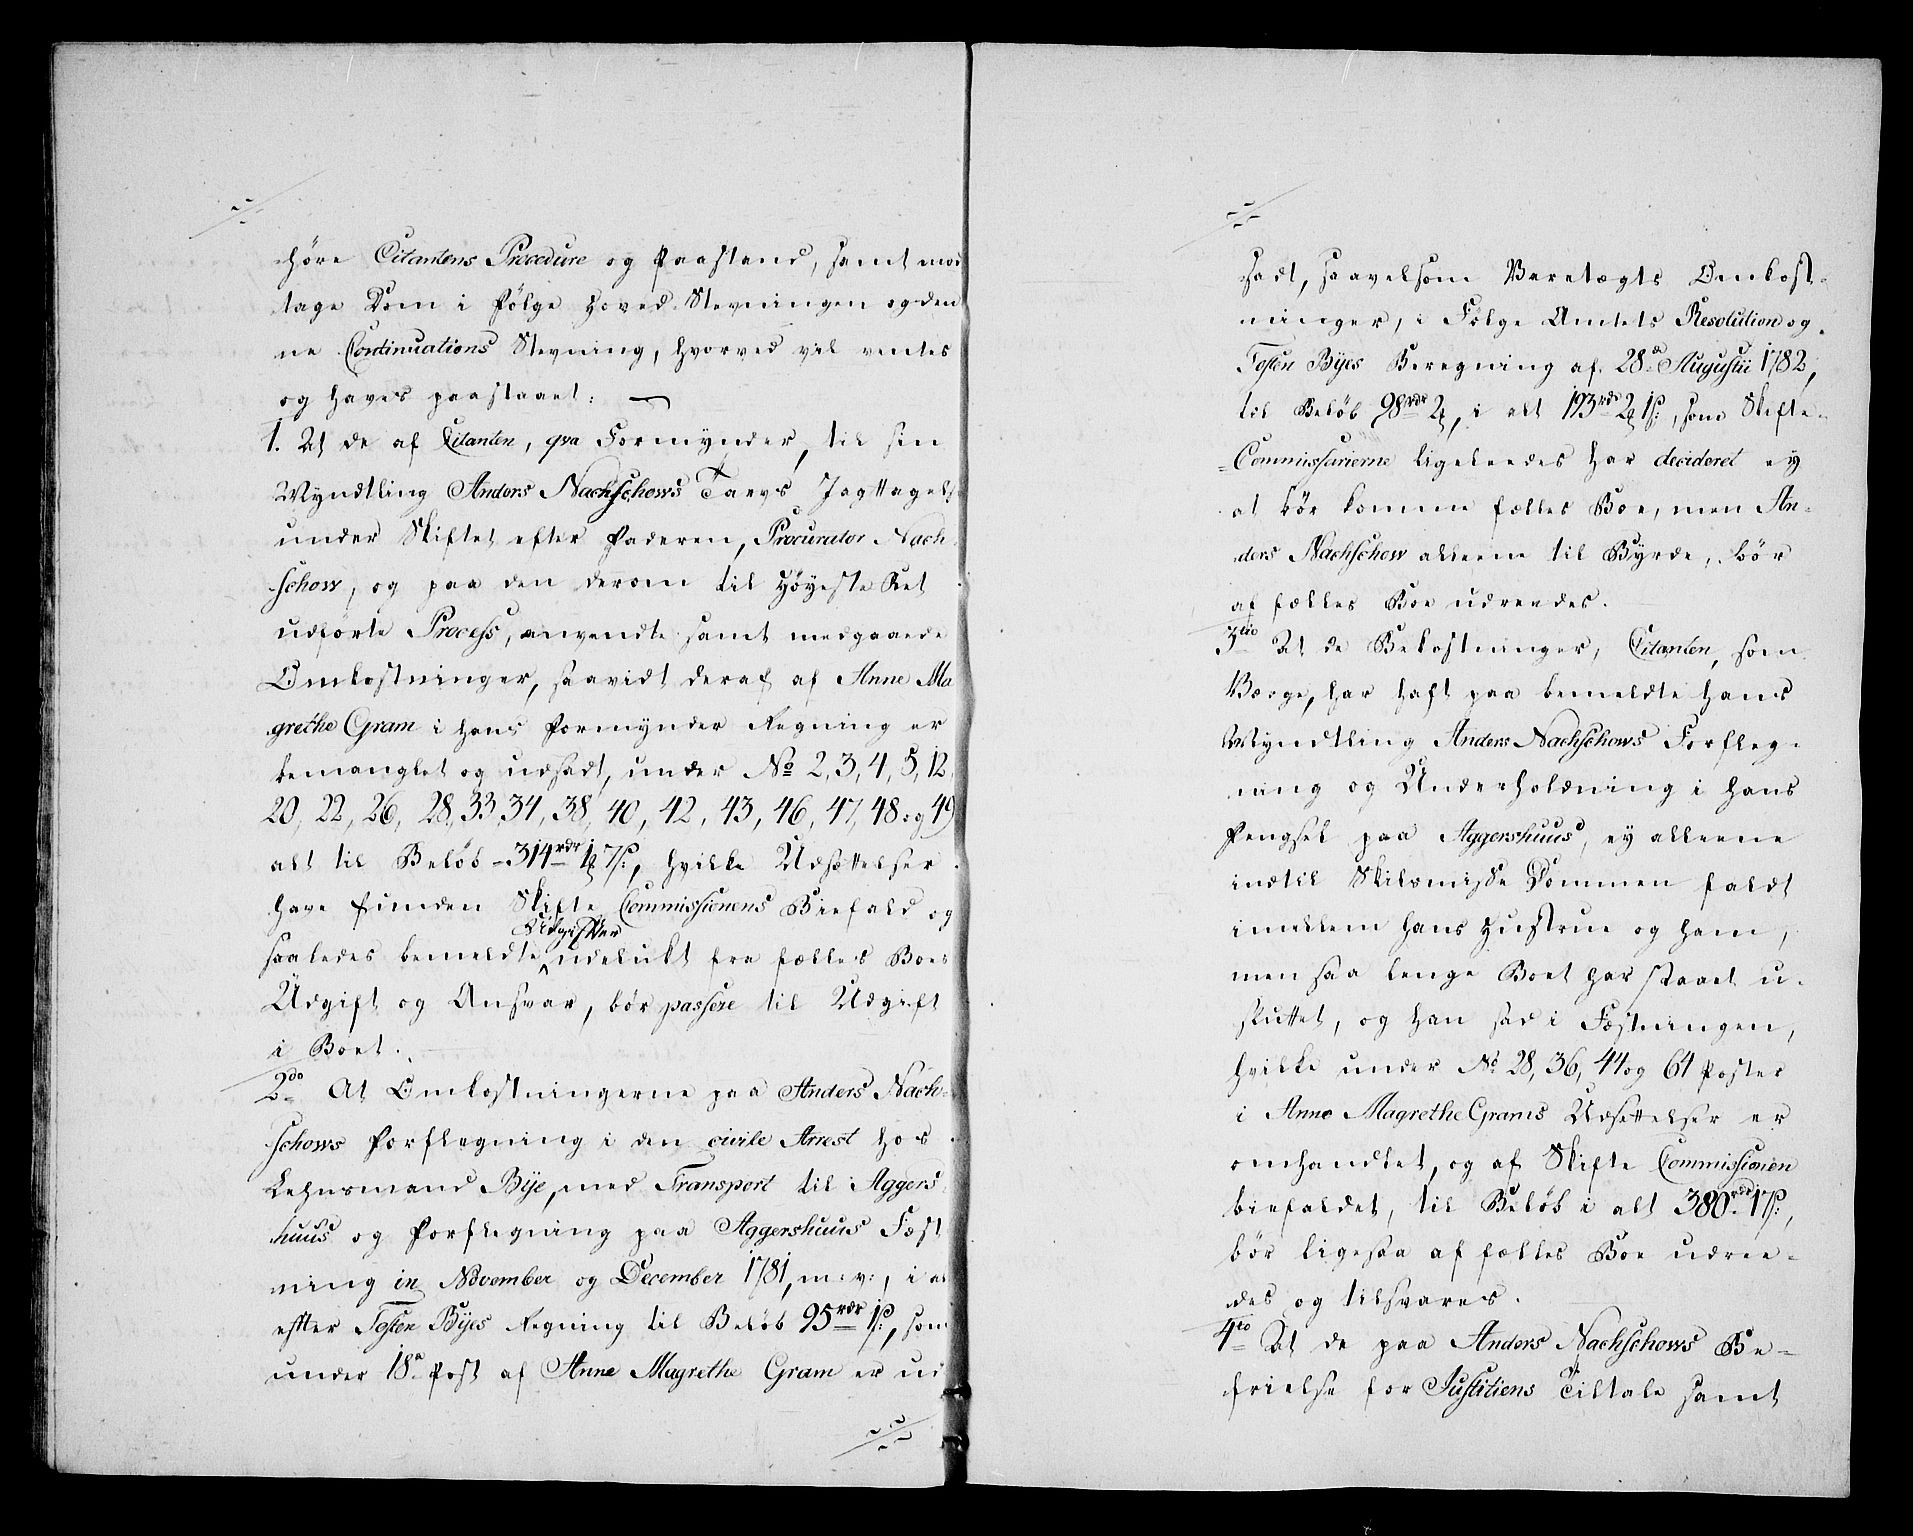 høre Citantens Procedure og Paastand, samt mod
tage Dom i Følge Hoved-Stevningen og den
ne Continuations Stevning, hvorved vil ventes
og haves paastaaet:
1. At de af Citanten, qva Formynder, til sin
Myndtling Anders Nachschows Tarvs Jagttagelse
under Skiftet efter Faderen, Procurator Nach-
schow, og paa den derom til Høyeste Ret
udførte Process, anvendte samt medgaaede
Omkostninger, saavidt deraf af Anne Ma
grethe Gram i hans Formynder Regning er
bemanglet og udsadt, under No 2, 3, 4, 5, 12,
20, 22, 26, 28, 33, 34, 38, 40, 42, 43, 46, 47, 48 og 49
alt til Beløb 314 rdr 1 ꝷ 7 ß:, hvilke Udsættelser
have funden Skifte Commissionens Biefald og
Udgifter
saaledes bemeldte udelukt fra fælles Boes
Udgift og Ansvar, bør passere til Udgift
i Boet.
2do At Omkostningerne paa Anders Nach-
schows Forflegning i den civile Arrest hos
Lehnsmand Bije, med Transport til Aggers
huus og Forflegning paa Aggershuus Fæst
ning in November og December 1781, m: v:, i alt
efter Tosten Bijes Regning til Beløb 95 rdr 1 ß:, som
under 18de Post af Anne Magrethe Gram er ud
sadt, saavelsom Varetægts Omkost-
ninger, i Følge Amtets Resolution og
Tosten Bijes Beregning af 28de Augustii 1782,
til Beløb 98 rdr 2 ꝷ, i alt 193 rdr 2 ꝷ 1 ß:, som Skifte-
Commissarierne ligeleedes har decideret ey
at bør komme fælles Boe, men An-
ders Nachschow alleene til Byrde, bør
af fælles Boe udreedes.
3tio At de Bekostninger, Citanten, som
Værge, har haft paa bemeldte hans
Myndtling Anders Nachschows Forfleg-
ning og Underholdning i hans
Fengsel paa Aggershuus, ey alleene
indtil Skilsmisse Dommen faldt
imellem hans Hustrue og ham,
men saa lenge Boet har staaet u-
skiftet, og han sad i Fæstningen,
hvilke under No 28, 36, 44 og 64 Poster
i Anne Magrethe Grams Udsettelser er
omhandlet, og af Skifte Commissionen
biefaldet, til Beløb i alt 380 rdr 17 ß:,
bør ligesaa af fælles Boe udree-
des og tilsvares.
4to At de paa Anders Nachschows Be-
frielse for Justitiens Tiltale samt